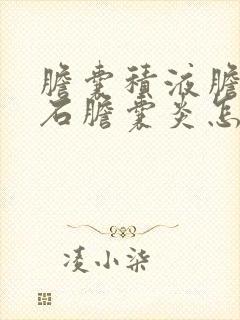 膽囊積液膽
石膽囊炎怎
凌小柒